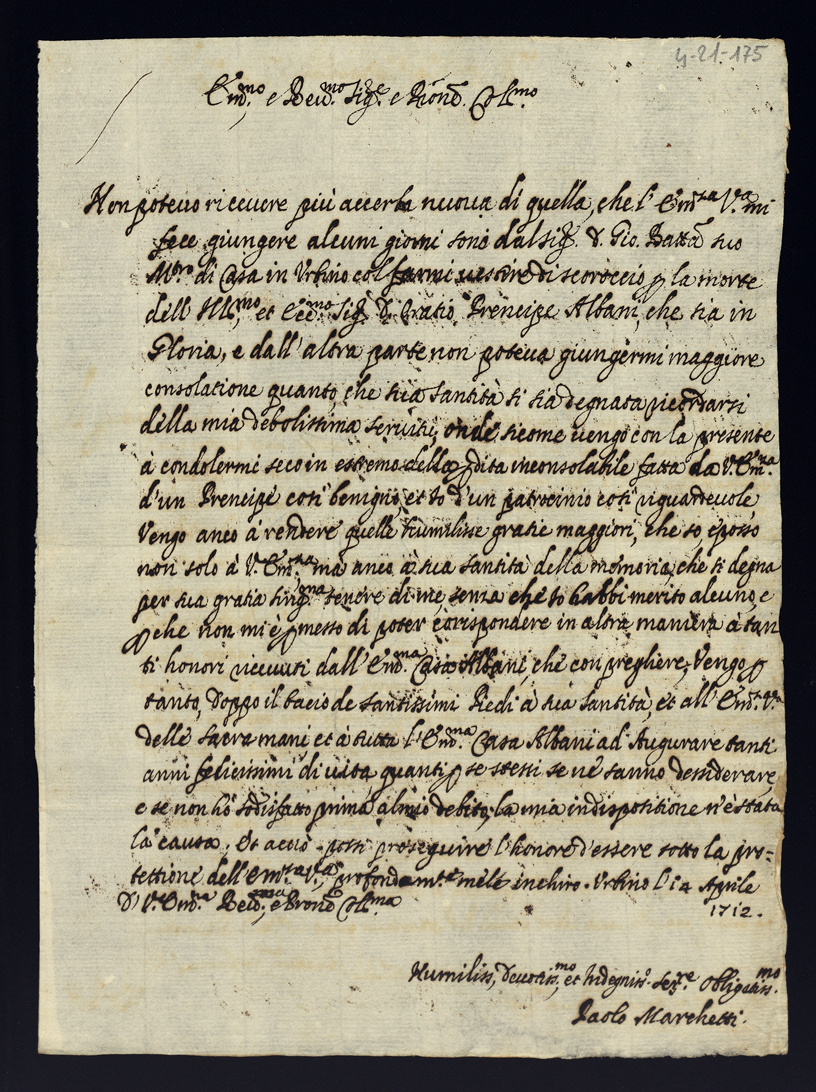 4-21-175
Em.mo e Reud.mo Sig.e e Prone Col.mo
Non poteuo riceuere più accerba nuoua di quella, che l'Em.za V.a mi
fece giungere alcuni giorni sono dal Sig. D. Gio. Batta suo
M.ro di Casa in Urbino col farmi uestire di scoroccio p la morte
dell' Ill.mo et Ecc.mo Sig. D. Oratio Prencipe Albani, che sia in
Gloria, e dall' altra parte non poteua giungermi maggiore
consolatione quanto, che sua Santità si sia degnata ricordarsi
della mia debolissima seruitù, onde sicome uengo con la presente
à condolermi seco in estremo della pdita inconsolabile fatta da V. Em.za
d'un Prencipe così benigno, et io d'un patrocinio così riguardeuole
Vengo anco à rendere quelle humilisse gratie maggiori, che so e posso
non solo à V. Em.za ma anco à sua Santità della memoria, che si degna
per sua gratia sing.ma tenere di me, senza che io habbi merito alcuno, e
p che non mi è pmesso di poter corispondere in altra maniera à tan
ti honori riceuuti dall' Em.ma Casa Albani, che con preghiere, Vengo p
tanto, doppo il bacio de Santissimi Piedi à sua Santità, et all' Em.za V.a
delle sacre mani et à tutta l'Em.ma Casa Albani ad Augurare tanti
anni felicissimi di uita quanti p se stessi se ne sanno dessiderare
e se non hò sodisfatto prima al mio debito, la mia indispositione n'è stata
la causa. Et acciò possi proseguire l'honore d'essere sotto la pro-
tettione dell' Em.za V.a profondam.te me le inchino. Urbino li 14 Aprile
D. V. Em.za Reud.ma, e Prone Col.ma 1712.
Humiliss, Deuotiss.mo, et Indegniss.o Ser.re Obligatiss.mo
Paolo Marchetti.